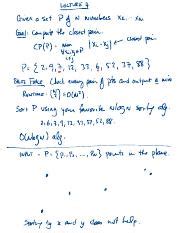 LECTURE 7
Given a set P of N numbers x₁ ... xₙ.
Goal: Compute the closest pair.
CP(P) = min |xᵢ - xⱼ| closest pair
P = {2, 9, 7, 12, 33, 6, 52, 37, 88}
Brute Force: Check every pair of pts and output a min
Runtime: (n 2) = O(n²).
Sort P using your favorite nlogn sorting alg.
2, 6, 7, 9, 12, 33, 37, 52, 88
O(nlogn) alg.
P = {p₁, p₂, ..., pₙ} points in the plane.
Sorting by x and y does not help.